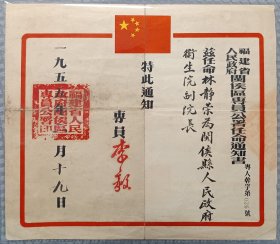 福建省
人民政府閩侯區專員公署任命通知書
專人幹字第號
茲任命林靜榮為閩侯縣人民政府
衛生院副院長
特此通知
專員 李毅
一九五五年 月十九日
福建省人民
政府閩侯區
專員公署印